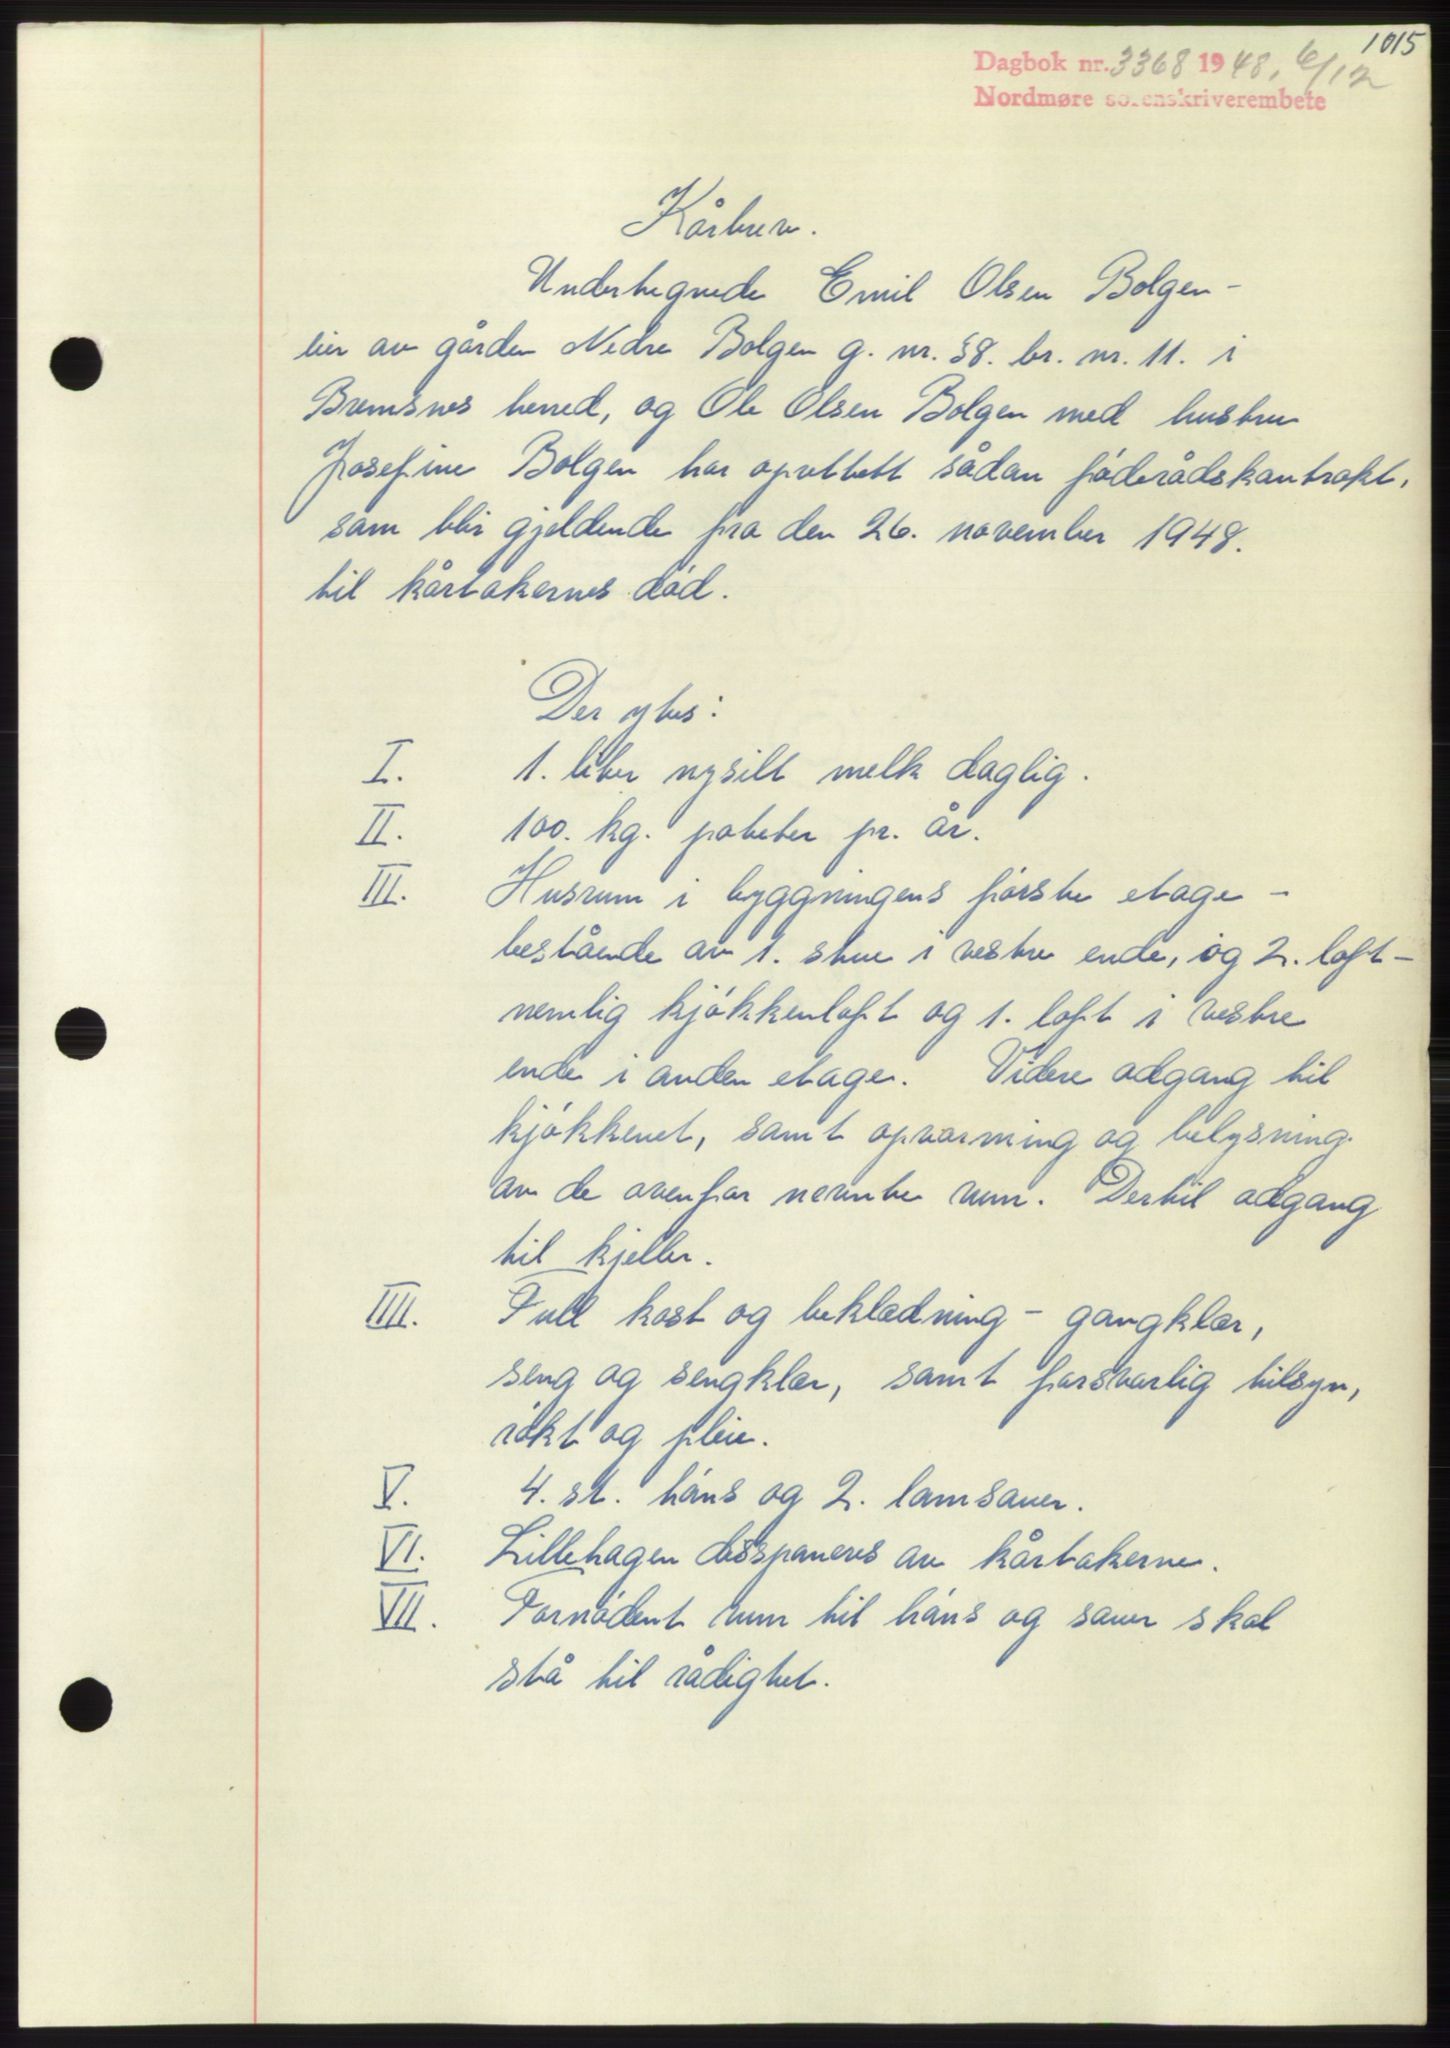 1015
Dagbok nr. 3368 1948, 6/12
Nordmøre sorenskriverembete
Kårbrev.
Undertegnede Emil Olsen Bolgen -
eier av gården Nedre Bolgen g. nr. 58. br. nr. 11. i
Bremsnes herred, og Ole Olsen Bolgen med hustru
Josefine Bolgen har oprettett sådan föderådskontrakt,
som blir gjeldende fra den 26. november 1948.
til kårtakernes död.
Der ytes:
I. 1. liter nysilt melk daglig.
II. 100. kg. poteter pr. år.
III. Husrum i byggningens förste etage -
bestående av 1. stue i vestre ende, og 2. loft -
nemlig kjökkenloft og 1. loft i vestre
ende i anden etage. Videre adgang til
kjökkenet, samt opvarming og belysning.
av de ovenfor nevnte rum. Dertil adgang
til kjeller.
IIII. Full kost og beklædning - gangklær,
seng og sengklær, samt forsvarlig tilsyn,
rökt og pleie.
V. 4. st. höns og 2. lamsauer.
VI. Lillehagen disponeres av kårtakerne.
VII. Fornödent rum til höns og sauer skal
stå til rådighet.